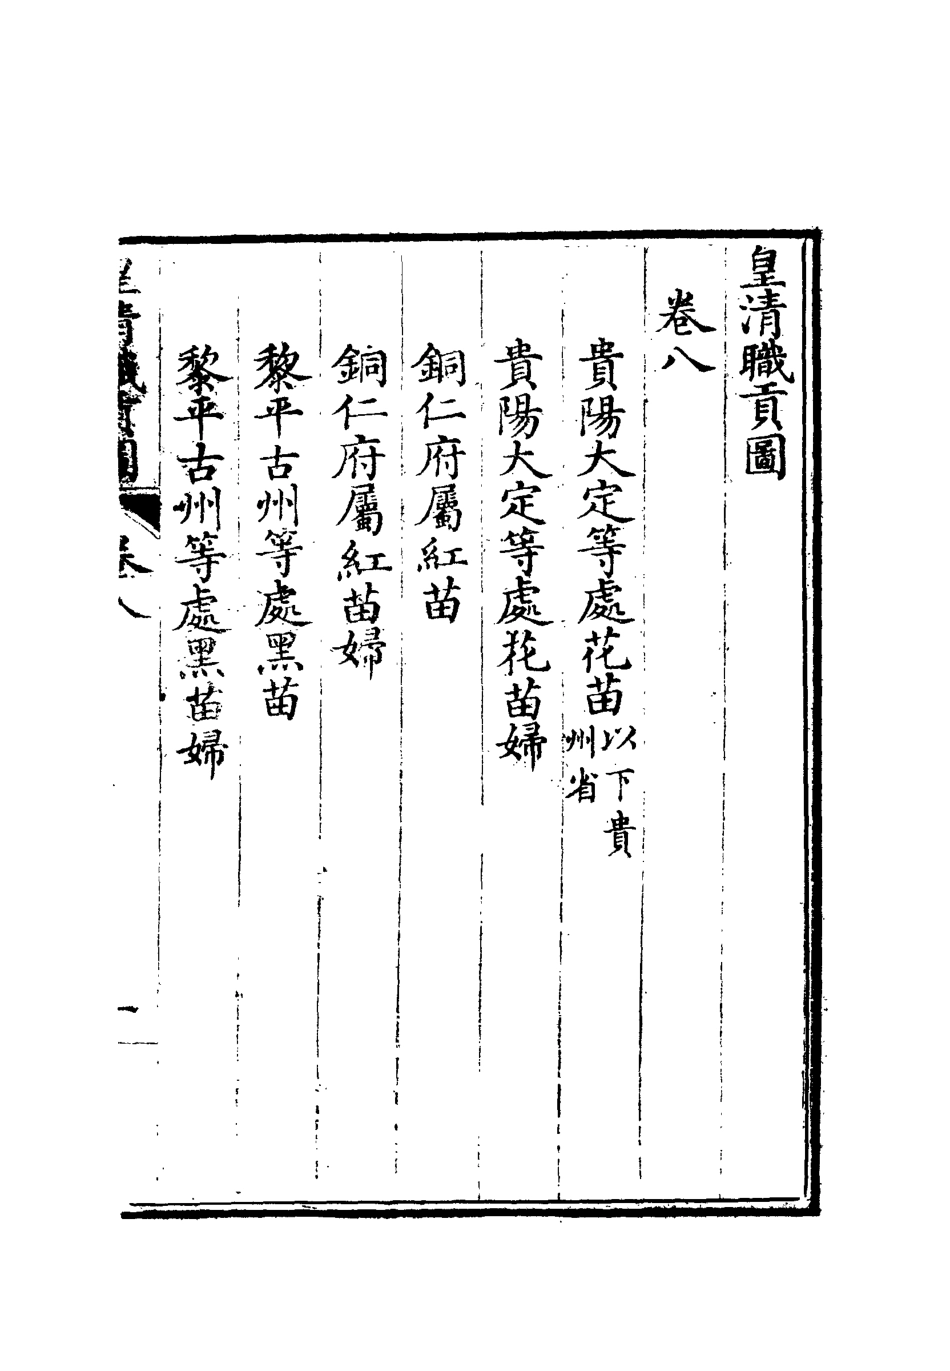 皇清職貢圖
卷八
貴陽大定等處花苗以下貴州省
貴陽大定等處花苗婦
銅仁府屬紅苗
銅仁府屬紅苗婦
黎平古州等處黑苗
黎平古州等處黑苗婦
皇清職貢圖 卷八 一